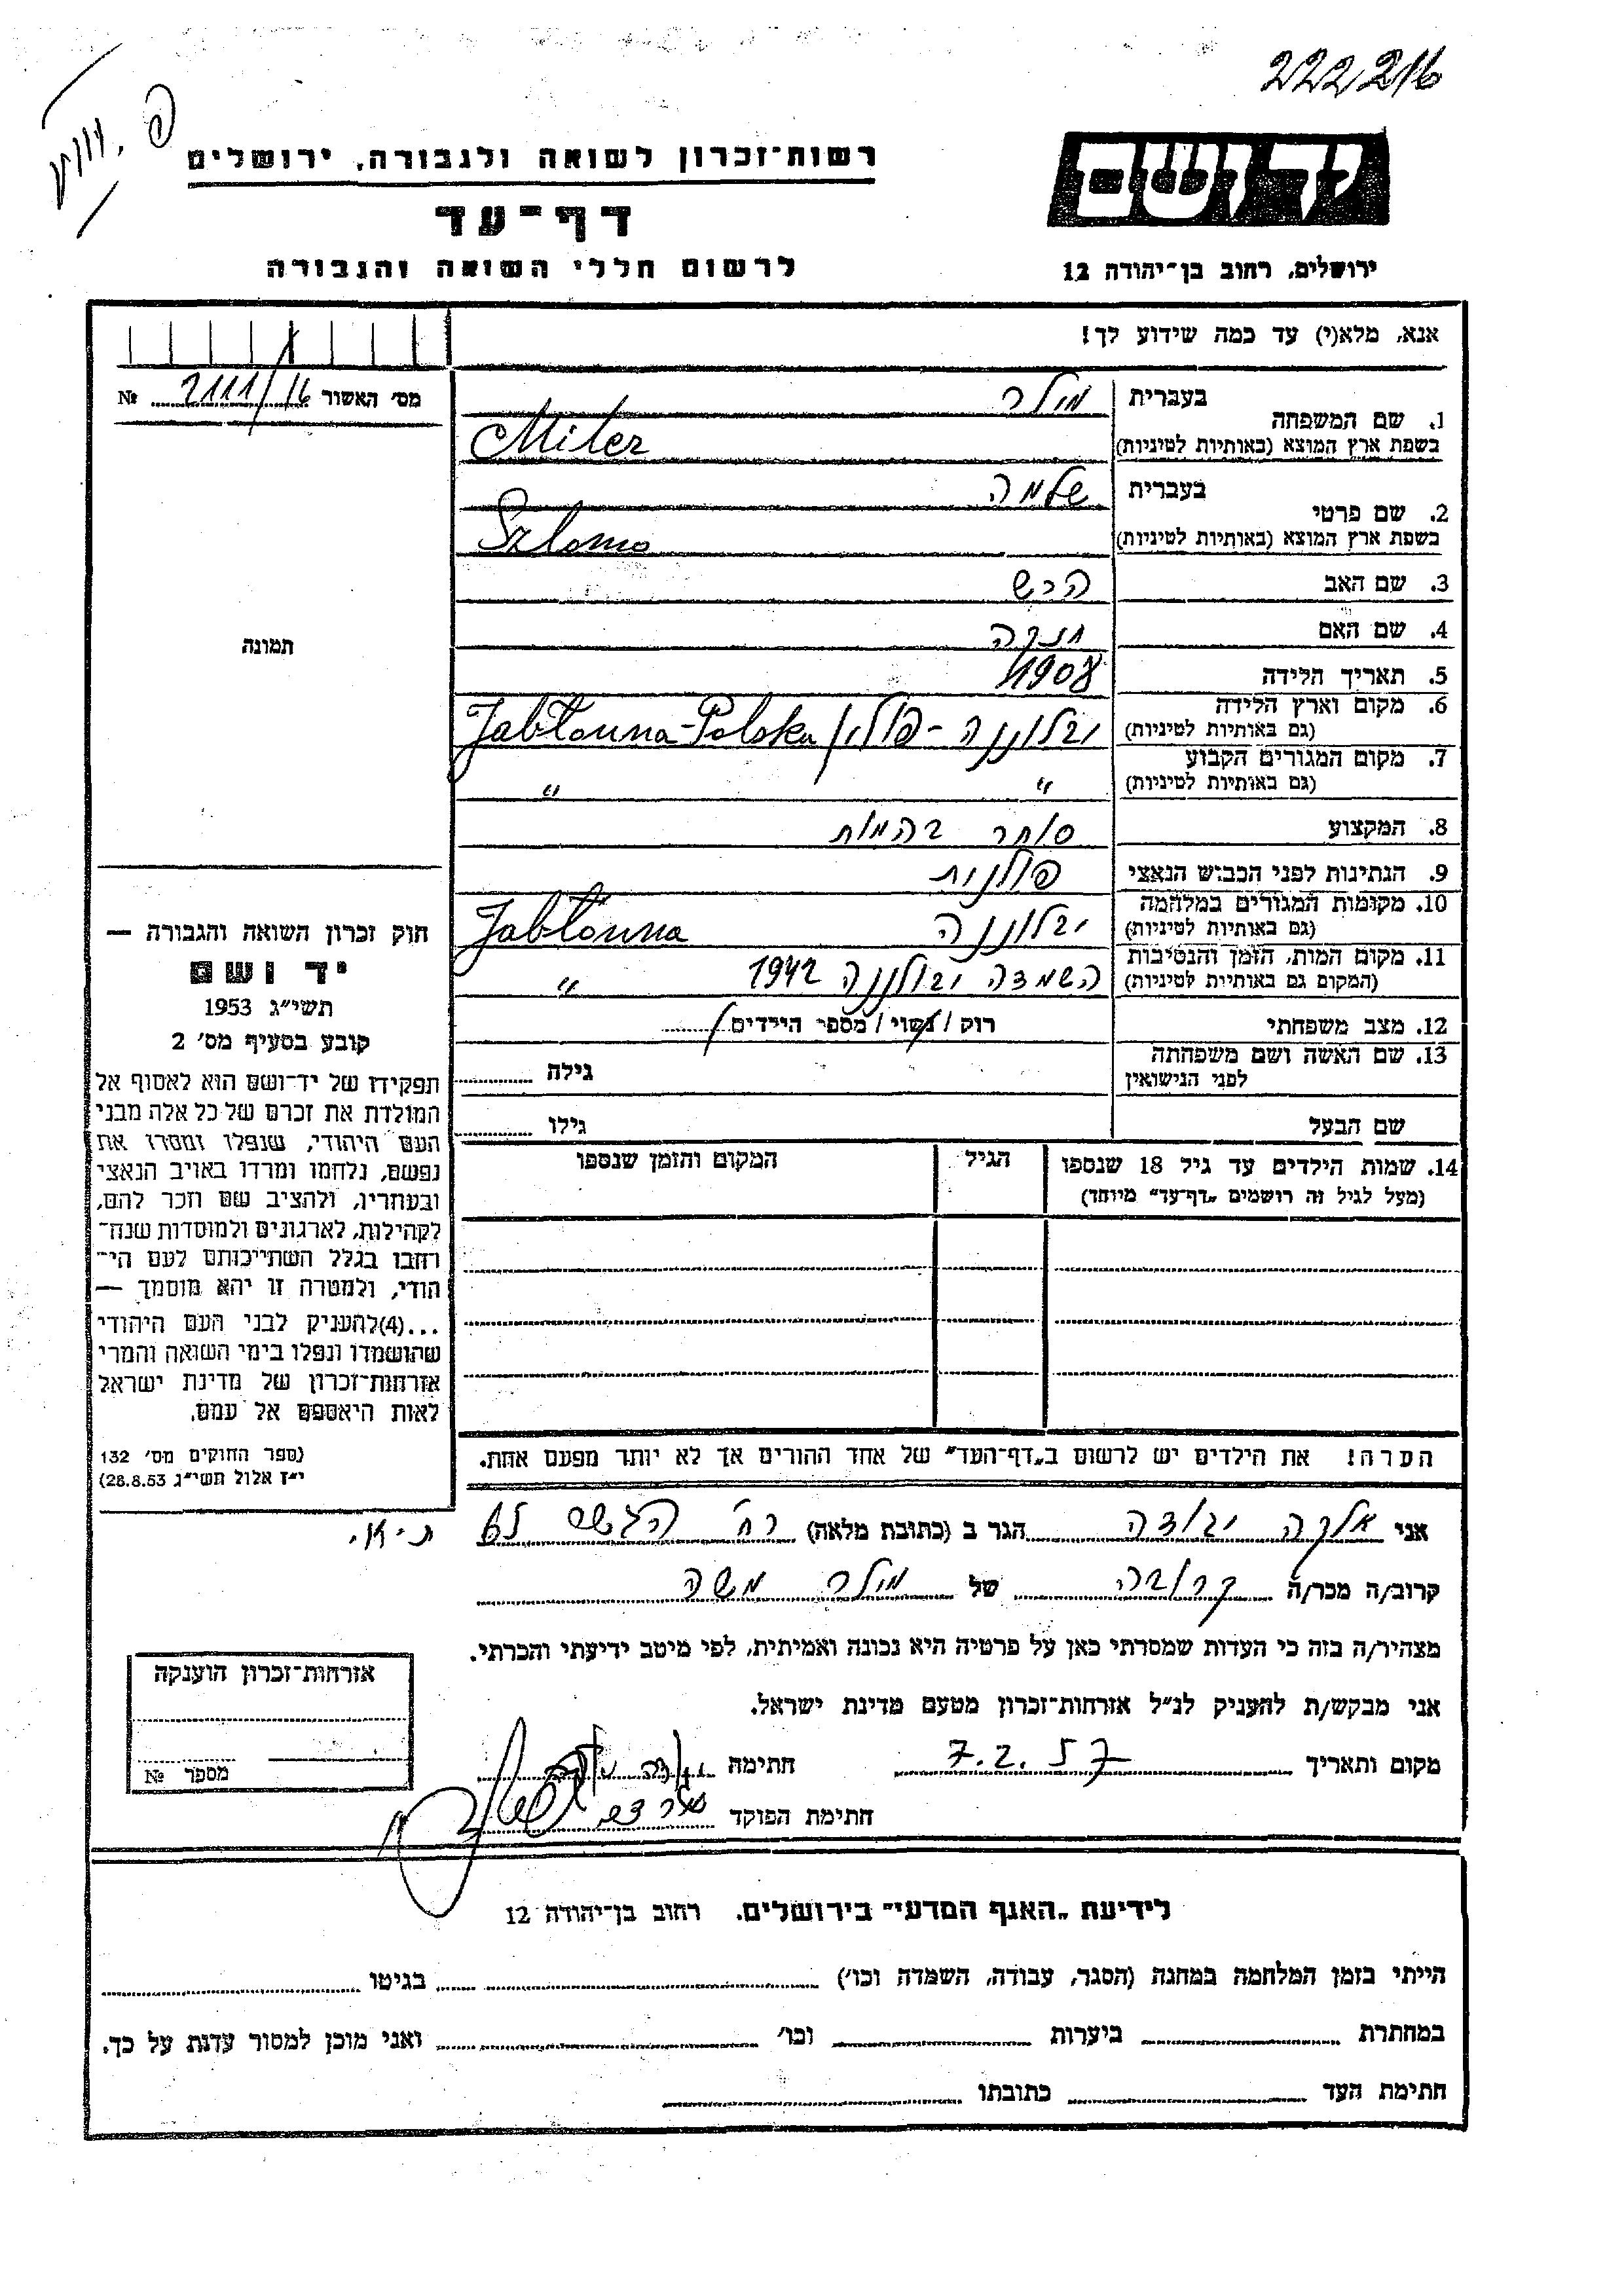 222216
רשות־זכרון לשואה ולגבורה, ירושלים
יד ושם
דף־עד
לרשום חללי השואה והגבורה
ירושלים, רחוב בן־יהודה 12
אנא, מלא(י) עד כמה שידוע לך!
מס׳ האשור 2111/16 №
1. שם המשפחה
בעברית מילר
בשפת ארץ המוצא (באותיות לטיניות) Miler
2. שם פרטי
בעברית שלמה
בשפת ארץ המוצא (באותיות לטיניות) Szlomo
3. שם האב הרש
4. שם האם חנקה
5. תאריך הלידה 1908
6. מקום וארץ הלידה
(גם באותיות לטיניות) יבלונה - פולין Jabłonna-Polska
7. מקום המגורים הקבוע
(גם באותיות לטיניות) " "
8. המקצוע סוחר בהמות
9. הנתינות לפני הכבוש הנאצי פולנית
10. מקומות המגורים במלחמה
(גם באותיות לטיניות) יבלונה Jabłonna
11. מקום המות, הזמן והנסיבות
(המקום גם באותיות לטיניות) השמדה יבלונה 1942 "
12. מצב משפחתי רוק / נשוי / מספר הילדים
13. שם האשה ושם משפחתה
לפני הנישואין גילה
שם הבעל גילו
14. שמות הילדים עד גיל 18 שנספו הגיל המקום והזמן שנספו
(מעל לגיל זה רושמים „דף־עד״ מיוחד)
הערה! את הילדים יש לרשום ב„דף־העד״ של אחד ההורים אך לא יותר מפעם אחת.
תמונה
חוק זכרון השואה והגבורה —
יד ושם
תשי״ג 1953
קובע בסעיף מס׳ 2
תפקידו של יד־ושם הוא לאסוף אל
המולדת את זכרם של כל אלה מבני
העם היהודי, שנפלו ומסרו את
נפשם, נלחמו ומרדו באויב הנאצי
ובעוזריו, ולהציב שם וזכר להם,
לקהילות, לארגונים ולמוסדות שנח־
רחבו בגלל השתייכותם לעם הי־
הודי, ולמטרה זו יהא מוסמך —
...(4)להעניק לבני העם היהודי
שהושמדו ונפלו בימי השואה והמרי
אזרחות־זכרון של מדינת ישראל
לאות היאספם אל עמם.
(ספר החוקים מס׳ 132
י״ז אלול תשי״ג 28.8.53)
אני אלקה הגר ב (כתובת מלאה) רח׳
קרוב/ה מכר/ה קרובה של מילר משה
מצהיר/ה בזה כי העדות שמסרתי כאן על פרטיה היא נכונה ואמיתית, לפי מיטב ידיעתי והכרתי.
אני מבקש/ת להעניק לנ״ל אזרחות־זכרון מטעם מדינת ישראל.
מקום ותאריך 7.2.57 חתימה
חתימת הפוקד
אזרחות־זכרון הוענקה
מספר №
לידיעת „האגף המדעי״ בירושלים. רחוב בן־יהודה 12
הייתי בזמן המלחמה במחנה (הסגר, עבודה, השמדה וכו׳) בגיטו
במחתרת ביערות וכו׳ ואני מוכן למסור עדות על כך.
חתימת העד כתובתו